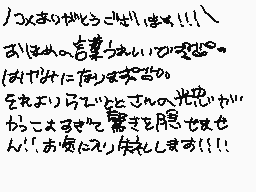 \コメありがとうございます!!!/
おほめの言葉うれしいです
はげみになります
それよりらびととさんの光恋が
かっこよすぎて驚きを隠せませ
ん!!お気に入り失礼します!!!!